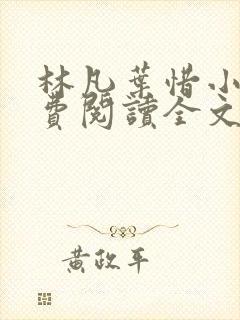 林凡葉惜小
費閱讀全文
黃政平